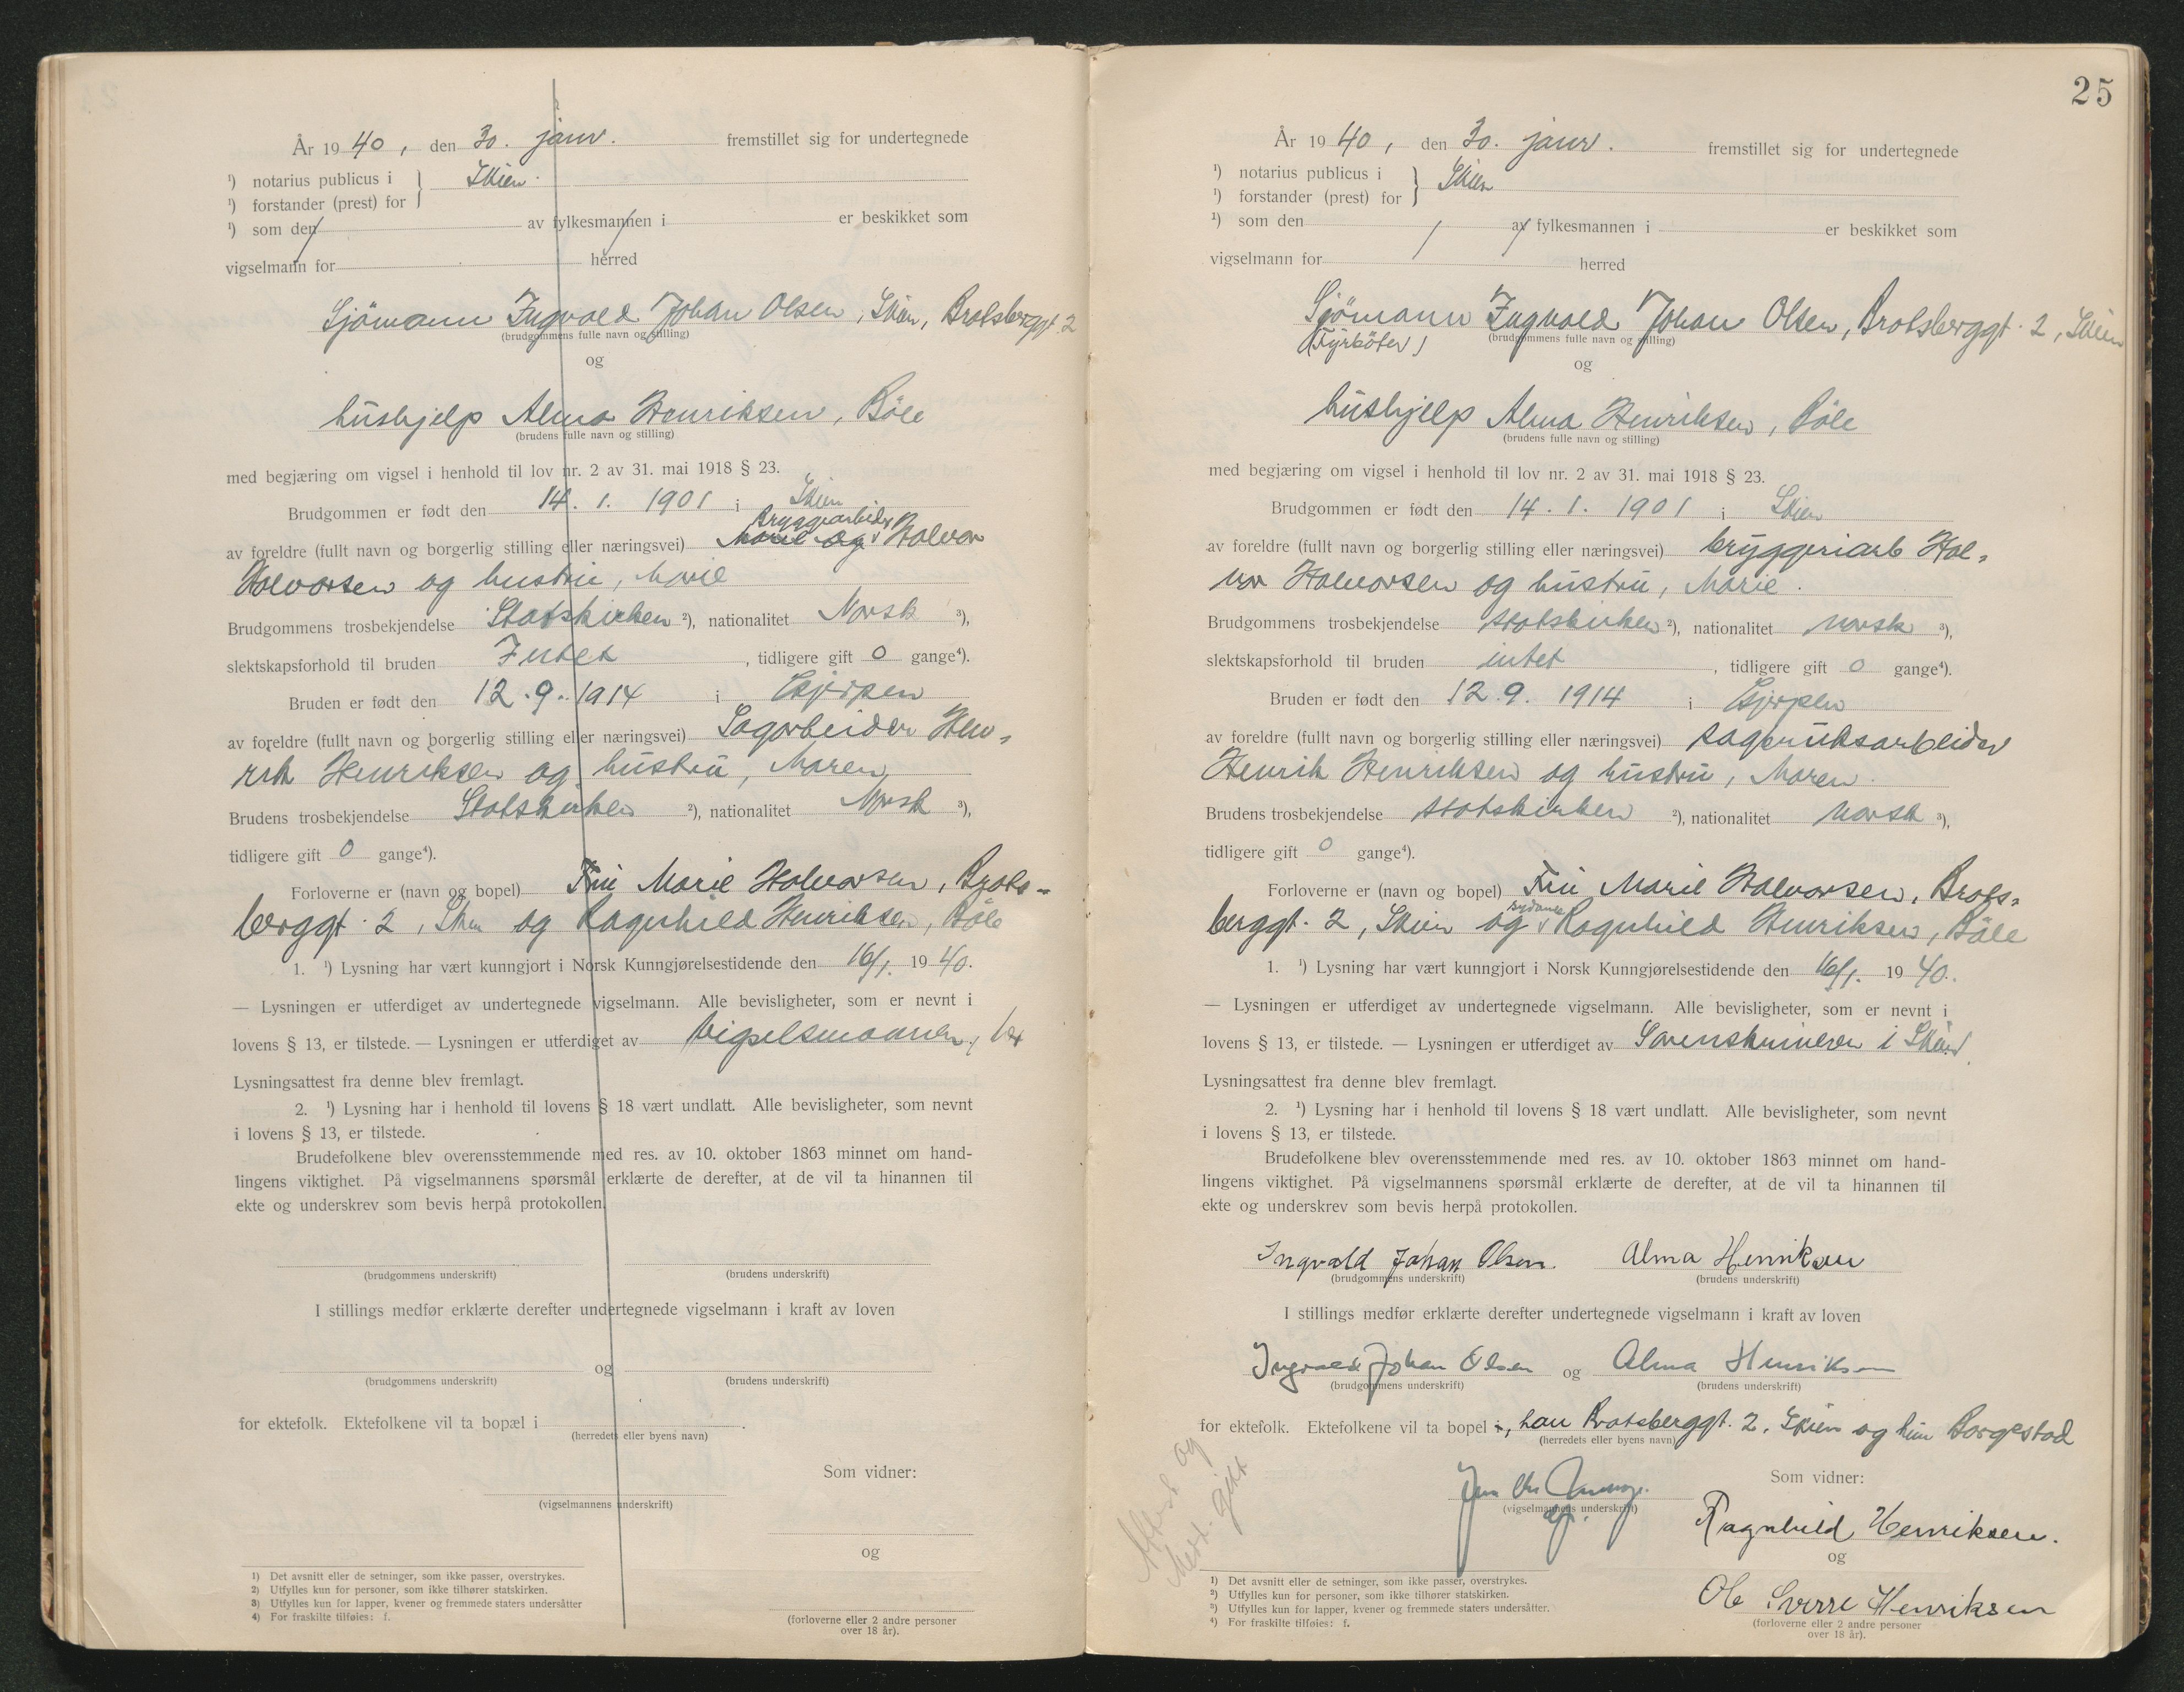 År 1940, den 30. janr. fremstillet sig for undertegnede
¹) notarius publicus i } Skien.
¹) forstander (prest) for
¹) som den av fylkesmannen i er beskikket som
vigselmann for herred
Sjömann Ingvald Johan Olsen, Skien, Bratsberggt. 2
(brudgommens fulle navn og stilling)
og
hushjelp Alma Henriksen, Böle
(brudens fulle navn og stilling)
med begjæring om vigsel i henhold til lov nr. 2 av 31. mai 1918 § 23.
Brudgommen er født den 14. 1. 1901 i Skien
av foreldre (fullt navn og borgerlig stilling eller næringsvei) Marie og Bryggearbeider Halvor
Halvorsen og hustru, Marie
Brudgommens trosbekjendelse Statskirken ²), nationalitet Norsk ³),
slektskapsforhold til bruden Intet, tidligere gift 0 gange⁴).
Bruden er født den 12. 9. 1914 i Gjerpen
av foreldre (fullt navn og borgerlig stilling eller næringsvei) Sagarbeider Hen-
rik Henriksen og hustru, Maren
Brudens trosbekjendelse Statskirken ²), nationalitet Norsk ³),
tidligere gift 0 gange⁴).
Forloverne er (navn og bopel) Fru Marie Halvorsen, Brats-
berggt. 2, Skien og Ragnhild Henriksen, Böle
1. ¹) Lysning har vært kunngjort i Norsk Kunngjørelsestidende den 16/1. 1940.
— Lysningen er utferdiget av undertegnede vigselmann. Alle bevisligheter, som er nevnt i
lovens § 13, er tilstede. — Lysningen er utferdiget av vigselsmannen,
Lysningsattest fra denne blev fremlagt.
2. ¹) Lysning har i henhold til lovens § 18 vært undlatt. Alle bevisligheter, som nevnt
i lovens § 13, er tilstede.
Brudefolkene blev overensstemmende med res. av 10. oktober 1863 minnet om hand-
lingens viktighet. På vigselmannens spørsmål erklærte de derefter, at de vil ta hinannen til
ekte og underskrev som bevis herpå protokollen.
(brudgommens underskrift) (brudens underskrift)
I stillings medfør erklærte derefter undertegnede vigselmann i kraft av loven
og
(brudgommens underskrift) (brudens underskrift)
for ektefolk. Ektefolkene vil ta bopæl i .
(herredets eller byens navn)
Som vidner:
(vigselmannens underskrift)
og
¹) Det avsnitt eller de setninger, som ikke passer, overstrykes.
²) Utfylles kun for personer, som ikke tilhører statskirken.
³) Utfylles kun for lapper, kvener og fremmede staters undersåtter
⁴) For fraskilte tilføies: f.
(forloverne eller 2 andre personer
over 18 år).
25
År 1940, den 30. janr. fremstillet sig for undertegnede
¹) notarius publicus i } Skien
¹) forstander (prest) for
¹) som den av fylkesmannen i er beskikket som
vigselmann for herred
Sjömann Ingvald Johan Olsen, Bratsberggt. 2, Skien
(Fyrböter)
(brudgommens fulle navn og stilling)
og
hushjelp Alma Henriksen, Böle
(brudens fulle navn og stilling)
med begjæring om vigsel i henhold til lov nr. 2 av 31. mai 1918 § 23.
Brudgommen er født den 14. 1. 1901 i Skien
av foreldre (fullt navn og borgerlig stilling eller næringsvei) bryggeriarb Hal-
vor Halvorsen og hustru, Marie.
Brudgommens trosbekjendelse statskirken ²), nationalitet norsk ³),
slektskapsforhold til bruden intet, tidligere gift 0 gange⁴).
Bruden er født den 12. 9. 1914 i Gjerpen
av foreldre (fullt navn og borgerlig stilling eller næringsvei) sagbruksarbeider
Henrik Henriksen og hustru, Maren.
Brudens trosbekjendelse statskirken ²), nationalitet norsk ³),
tidligere gift 0 gange⁴).
Forloverne er (navn og bopel) Fru Marie Halvorsen, Brats-
berggt. 2, Skien og Ragnhild Henriksen, Böle
1. ¹) Lysning har vært kunngjort i Norsk Kunngjørelsestidende den 16/1. 1940.
— Lysningen er utferdiget av undertegnede vigselmann. Alle bevisligheter, som er nevnt i
lovens § 13, er tilstede. — Lysningen er utferdiget av Sorenskriveren i Skien
Lysningsattest fra denne blev fremlagt.
2. ¹) Lysning har i henhold til lovens § 18 vært undlatt. Alle bevisligheter, som nevnt
i lovens § 13, er tilstede.
Brudefolkene blev overensstemmende med res. av 10. oktober 1863 minnet om hand-
lingens viktighet. På vigselmannens spørsmål erklærte de derefter, at de vil ta hinannen til
ekte og underskrev som bevis herpå protokollen.
Ingvald Johan Olsen. Alma Henriksen
(brudgommens underskrift) (brudens underskrift)
I stillings medfør erklærte derefter undertegnede vigselmann i kraft av loven
Ingvald Johan Olsen og Alma Henriksen
(brudgommens underskrift) (brudens underskrift)
for ektefolk. Ektefolkene vil ta bopel i, han Bratsberggt. 2, Skien og hun Borgestad
(herredets eller byens navn)
Attest og
medd. gitt
Som vidner:
(vigselmannens underskrift)
Ragnhild Henriksen.
og
Ole Sverre Henriksen
¹) Det avsnitt eller de setninger, som ikke passer, overstrykes.
²) Utfylles kun for personer, som ikke tilhører statskirken.
³) Utfylles kun for lapper, kvener og fremmede staters undersåtter.
⁴) For fraskilte tilføies: f.
(forloverne eller 2 andre personer
over 18 år).